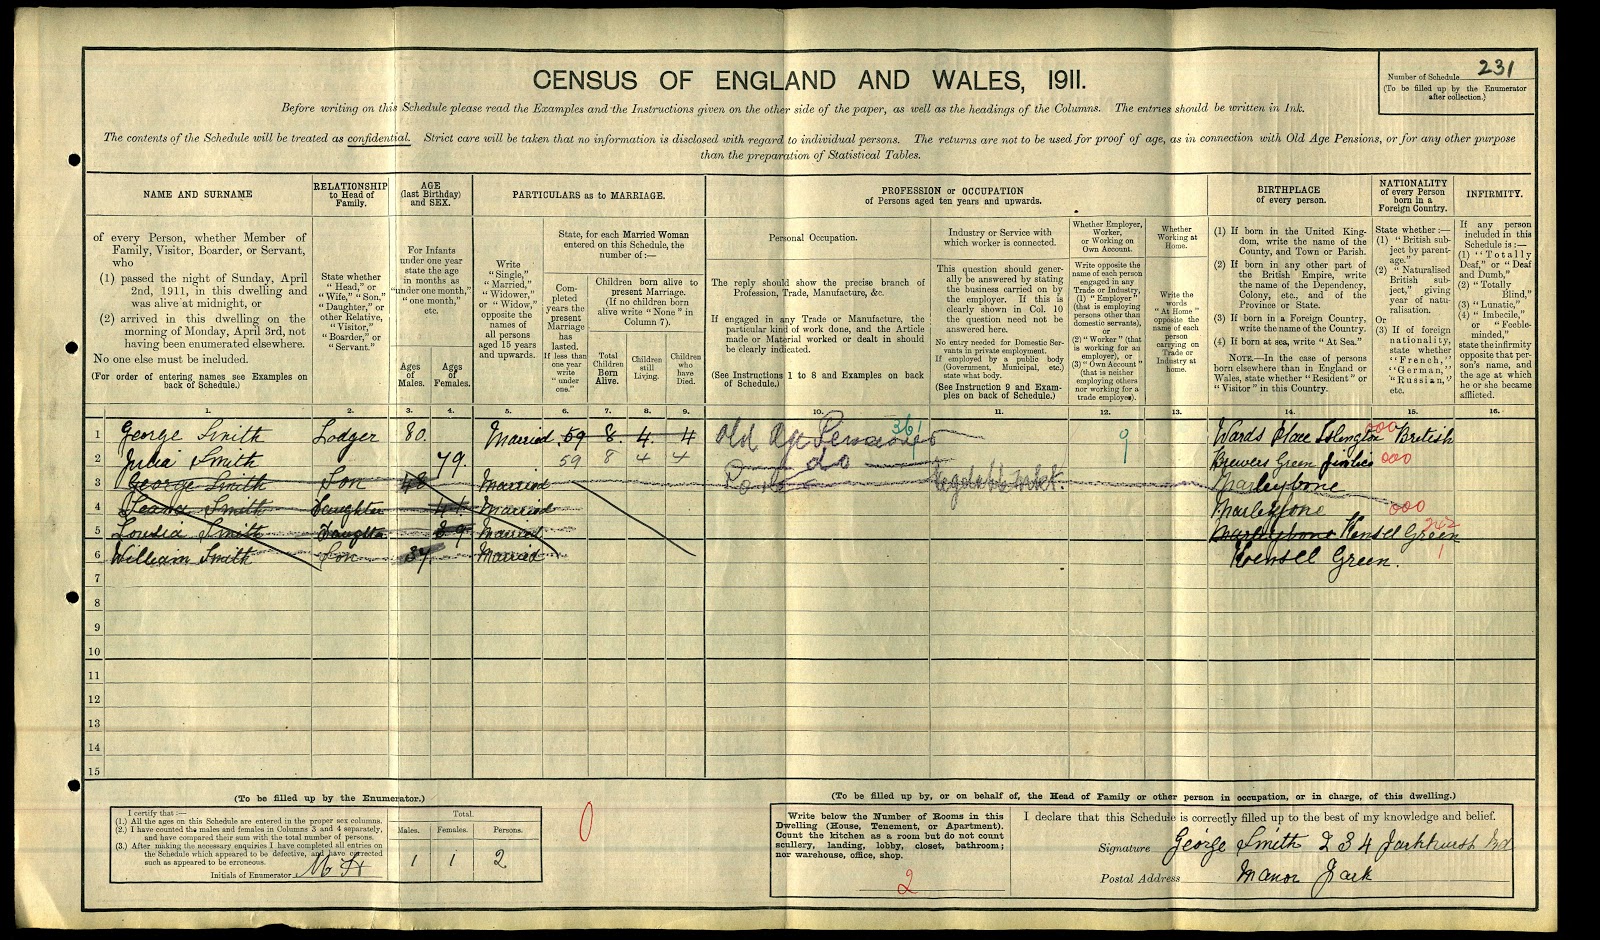 CENSUS OF ENGLAND AND WALES, 1911.
Number of Schedule 231
(To be filled up by the Enumerator after collection.)
Before writing on this Schedule please read the Examples and the Instructions given on the other side of the paper, as well as the headings of the Columns. The entries should be written in Ink.
The contents of the Schedule will be treated as confidential. Strict care will be taken that no information is disclosed with regard to individual persons. The returns are not to be used for proof of age, as in connection with Old Age Pensions, or for any other purpose
than the preparation of Statistical Tables.
NAME AND SURNAME
of every Person, whether Member of Family, Visitor, Boarder, or Servant, who
(1) passed the night of Sunday, April 2nd, 1911, in this dwelling and was alive at midnight, or
(2) arrived in this dwelling on the morning of Monday, April 3rd, not having been enumerated elsewhere.
No one else must be included.
(For order of entering names see Examples on back of Schedule.)
RELATIONSHIP to Head of Family.
State whether "Head," or "Wife," "Son," "Daughter," or other Relative, "Visitor," "Boarder," or "Servant."
AGE (last Birthday) and SEX.
For Infants under one year state the age in months as "under one month," "one month," etc.
Ages of Males.
Ages of Females.
PARTICULARS as to MARRIAGE.
Write "Single," "Married," "Widower," or "Widow," opposite the names of all persons aged 15 years and upwards.
State, for each Married Woman entered on this Schedule, the number of:—
Completed years the present Marriage has lasted. If less than one year write "under one."
Children born alive to present Marriage. (If no children born alive write "None" in Column 7).
Total Children Born Alive.
Children still Living.
Children who have Died.
PROFESSION or OCCUPATION
of Persons aged ten years and upwards.
Personal Occupation.
The reply should show the precise branch of Profession, Trade, Manufacture, &c.
If engaged in any Trade or Manufacture, the particular kind of work done, and the Article made or Material worked or dealt in should be clearly indicated.
(See Instructions 1 to 8 and Examples on back of Schedule.)
Industry or Service with which worker is connected.
This question should generally be answered by stating the business carried on by the employer. If this is clearly shown in Col. 10 the question need not be answered here.
No entry needed for Domestic Servants in private employment. If employed by a public body (Government, Municipal, etc.) state what body.
(See Instruction 9 and Examples on back of Schedule.)
Whether Employer, Worker, or Working on Own Account.
Write opposite the name of each person engaged in any Trade or Industry, (1) "Employer" (that is employing persons other than domestic servants), or (2) "Worker" (that is working for an employer), or (3) "Own Account" (that is neither employing others nor working for a trade employer).
Whether Working at Home.
Write the words "At Home" opposite the name of each person carrying on Trade or Industry at home.
BIRTHPLACE of every person.
(1) If born in the United Kingdom, write the name of the County, and Town or Parish.
(2) If born in any other part of the British Empire, write the name of the Dependency, Colony, etc., and of the Province or State.
(3) If born in a Foreign Country, write the name of the Country.
(4) If born at sea, write "At Sea."
NOTE.—In the case of persons born elsewhere than in England or Wales, state whether "Resident" or "Visitor" in this Country.
NATIONALITY of every Person born in a Foreign Country.
State whether :—
(1) "British subject by parentage."
(2) "Naturalised British subject," giving year of naturalisation.
Or
(3) If of foreign nationality, state whether "French," "German," "Russian," etc.
INFIRMITY.
If any person included in this Schedule is:— (1) "Totally Deaf," or "Deaf and Dumb," (2) "Totally Blind," (3) "Lunatic," (4) "Imbecile," or "Feeble-minded," state the infirmity opposite that person's name, and the age at which he or she became afflicted.
1. 2. 3. 4. 5. 6. 7. 8. 9. 10. 11. 12. 13. 14. 15. 16.
1 George Smith Lodger 80. Married. 59 8. 4. 4 Old Age Pensioner 361 9 Wards Place Islington 000 British
2 Julia Smith 79. 59 8 4 4 do Brewers Green 000
3 George Smith Son Married Marleybone
4 Smith Daughter Married Marleybone 000
5 Lousia Smith Daughter 39 Married Marleybone Kensel Green 262
6 William Smith Son 37. Married Kensell Green. 1
7
8
9
10
11
12
13
14
15
(To be filled up by the Enumerator.)
I certify that:—
(1.) All the ages on this Schedule are entered in the proper sex columns.
(2.) I have counted the males and females in Columns 3 and 4 separately, and have compared their sum with the total number of persons.
(3.) After making the necessary enquiries I have completed all entries on the Schedule which appeared to be defective, and have corrected such as appeared to be erroneous.
Initials of Enumerator
Total.
Males. Females. Persons.
1 1 2
0
(To be filled up by, or on behalf of, the Head of Family or other person in occupation, or in charge, of this dwelling.)
Write below the Number of Rooms in this Dwelling (House, Tenement, or Apartment). Count the kitchen as a room but do not count scullery, landing, lobby, closet, bathroom; nor warehouse, office, shop.
2
I declare that this Schedule is correctly filled up to the best of my knowledge and belief.
Signature George Smith 234 Parkhurst Rd
Postal Address Manor Park